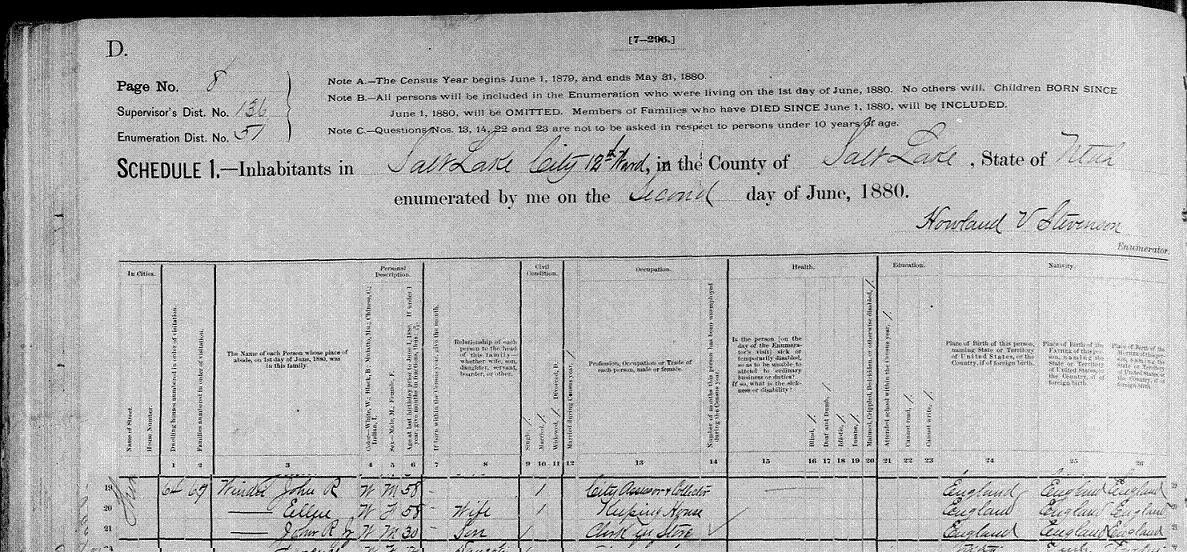 D.
[7-296.]
Page No. 8
Supervisor's Dist. No. 136
Enumeration Dist. No. 51
Note A.—The Census Year begins June 1, 1879, and ends May 31, 1880.
Note B.—All persons will be included in the Enumeration who were living on the 1st day of June, 1880. No others will. Children BORN SINCE
June 1, 1880, will be OMITTED. Members of Families who have DIED SINCE June 1, 1880, will be INCLUDED.
Note C.—Questions Nos. 13, 14, 22 and 23 are not to be asked in respect to persons under 10 years of age.
SCHEDULE 1.—Inhabitants in Salt Lake City 12th Ward, in the County of Salt Lake, State of Utah
enumerated by me on the Second day of June, 1880.
Howland V Stevenson
Enumerator.
In Cities.
Personal Description.
Civil Condition.
Occupation.
Health.
Education.
Nativity.
Name of Street.
House Number.
Dwelling houses numbered in order of visitation.
Families numbered in order of visitation.
The Name of each Person whose place of
abode, on 1st day of June, 1880, was
in this family.
Relationship of each
person to the head
of this family—
whether wife, son,
daughter, servant,
boarder, or other.
Single, /
Married, /
Widowed, / Divorced, D.
Married during Census year, /
Profession, Occupation or Trade of
each person, male or female.
Number of months this person has been unemployed
during the Census year.
Is the person [on the
day of the Enumera-
tor's visit] sick or
temporarily disabled,
so as to be unable to
attend to ordinary
business or duties?
If so, what is the sick-
ness or disability?
Blind, /
Deaf and Dumb, /
Idiotic, /
Insane, /
Maimed, Crippled, Bedridden, or otherwise disabled, /
Attended school within the Census year, /
Cannot read, /
Cannot write, /
Place of Birth of this person,
naming State or Territory
of United States, or the
Country, if of foreign birth.
Place of Birth of the
Father of this per-
son, naming the
State or Territory
of United States, or
the Country, if of
foreign birth.
1 2 3 4 5 6 7 8 9 10 11 12 13 14 15 16 17 18 19 20 21 22 23 24 25 26
19 64 69 John R W M 58 - / City Assessor & Collector England England England
20 W F 58 - Wife / Keeping House England England England
21 John R Jr W M 30 - Son / England England England